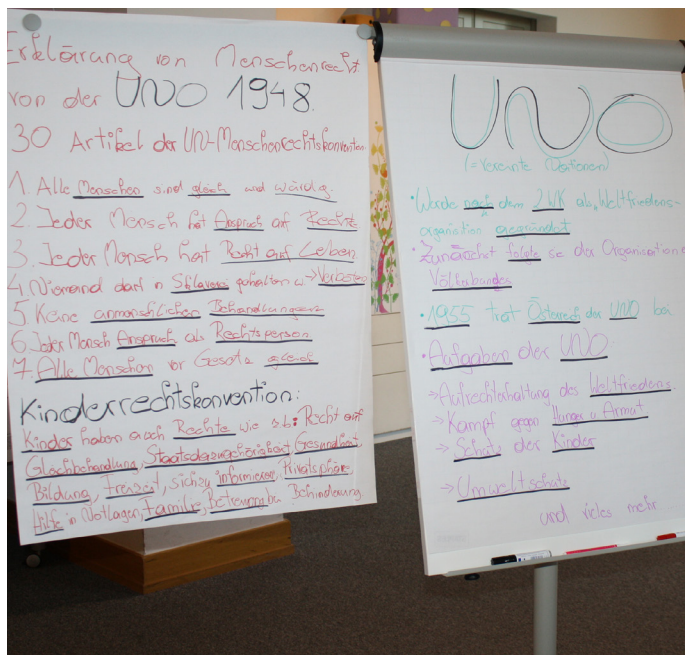 Erklärung von Menschenrecht
von der UNO 1948.
30 Artikel der UN-Menschenrechtskonvention
1. Alle Menschen sind gleich und würdig.
2. Jeder Mensch hat Anspruch auf Rechte
3. Jeder Mensch hat Recht auf Leben.
4. Niemand darf in Sklaverei gehalten w. → Verboten
5 Keine Behandlungen
6. Jeder Mensch Anspruch als Rechtsperson
7. Alle Menschen vor Gesetz gleich
Kinderrechtskonvention:
Kinder haben auch Rechte wie z.b: Recht auf
Gleichbehandlung, Staatsangehörigkeit, Gesundheit,
Bildung, Freizeit, sich zu informieren, Privatsphäre,
Hilfe in Notlagen, Familie, Betreuung bei Behinderung
UNO
(= Vereinte Nationen)
• Wurde nach dem 2WK als Weltfriedens-
organisation gegründet
• Zunächst folgte sie der Organisation d
Völkerbundes
• 1955 trat Österreich der UNO bei
• Aufgaben der UNO:
→ Aufrechterhaltung des Weltfriedens
→ Kampf gegen Hunger u. Armut
→ Schutz der Kinder
→ Umweltschutz
und vieles mehr